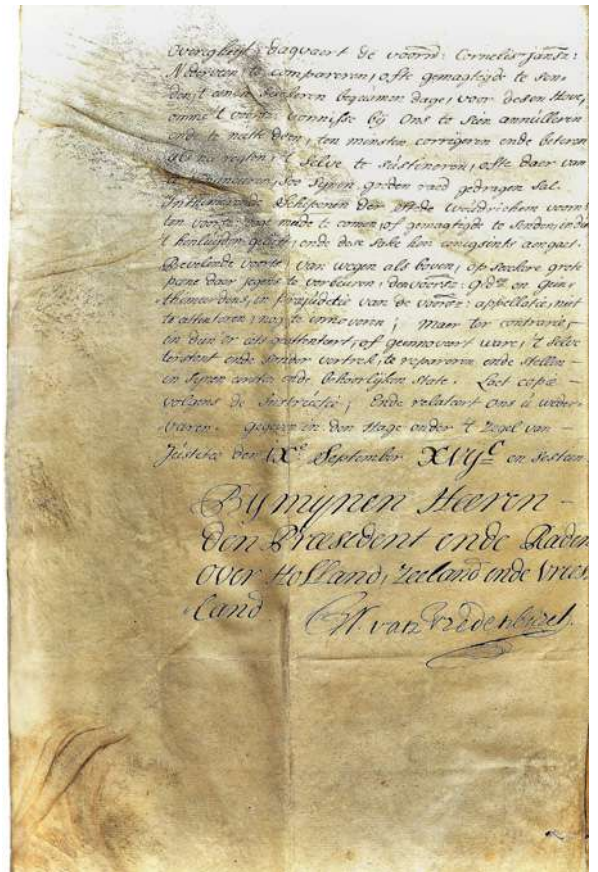 Overigheijt, dagvaert de voorn: Cornelis Jansz:
Nederveen, te compareren, ofte gemagtigde te sen-
den, t'eenen seeckeren bequamen dage, voor desen Hove,
omme 't voorsz: vonnisse bij Ons te sien annulleren
ende te nulle doen, ten minsten corrigeren ende beteren
als na regten, 't selve te sustineren, ofte daer van
te renuncieren, soo sijnen goeden raed gedragen sal.
Inthimerende Schepenen der stede voorn:
ten voorsz: dage mede te comen, of gemagtigde te senden, indien
't henluijden gelieft, ende dese sake hen eenigsints aengaet.
Bevelende voorts, van wegen als boven, op seeckere grote
pene daer jegens te verbeuren, den voorsz: ged.e en gein-
thimeerdens, in prejuditie van de voorsz: appellatie, niet
te attenteren, nog te innoveren; Maer ter contrarie,
en dien er iets geattenteert, of geinnoveert ware, 't selve
terstont ende sonder vertrek, te repareren ende stellen
in sijnen eersten ende behoorlijken state. Laet copie -
volgens de Instructie; Ende relateert Ons u weder-
varen. gegeven in den Hage onder 't Zegel van -
Justitie den IX.e September XVIJ.C en sestien.
Bij mijnen Heeren -
den Præsident ende Raden
over Holland, Zeeland ende Vries-
land